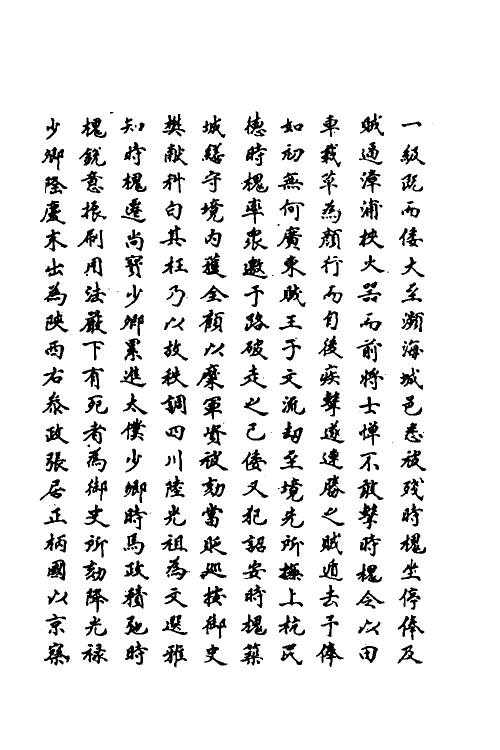 一級既而倭大至瀕海城邑悉被殘時槐坐停俸及
賊逼漳浦挾火器而前將士憚不敢擊時槐令以田
車載草為顏行而自後疾擊遂連勝之賊逍去予俸
如初無何廣東賊王子文流劫至境先所撫上杭民
徳時槐率衆邀于路破走之已倭又犯詔安時槐築
城繕守境内獲全顧以糜軍資被劾當貶巡按御史
樊献科白其枉乃以故秩調四川陸光祖為文選雅
知時槐遷尚寳少卿累進太僕少卿時馬政積弛時
槐銳意振刷用法嚴下有死者為御史所劾降光祿
少卿隆慶末出為陜西右叅政張居正柄國以京察